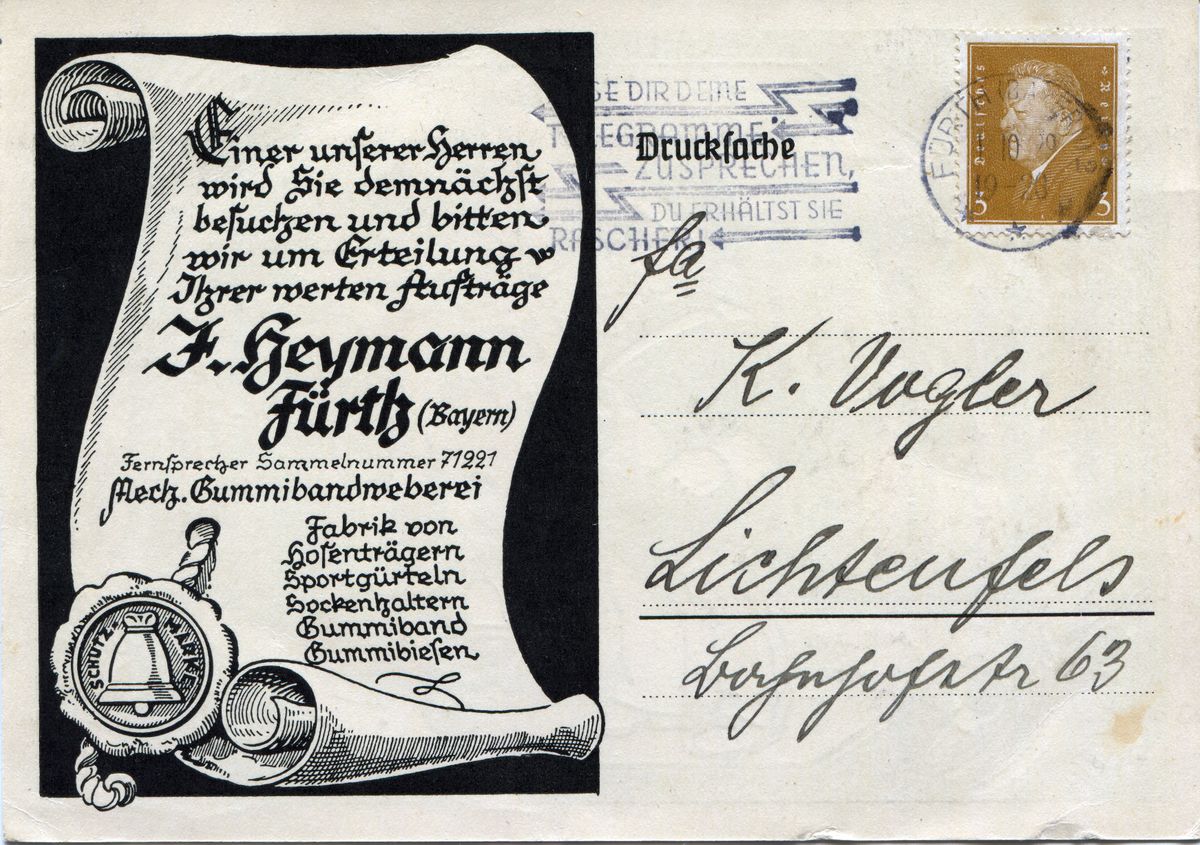 Einer unserer Herren
wird Sie demnächst
besuchen und bitten
wir um Erteilung
Ihrer werten Aufträge
J. Heymann
Fürth (Bayern)
Fernsprecher Sammelnummer 71221
Mech. Gummibandweberei
Fabrik von
Hosenträgern
Sportgürteln
Sockenhaltern
Gummiband
Gummibiesen
SCHUTZ MARKE
GE DIR DEINE
TELEGRAMME
ZUSPRECHEN,
DU ERHÄLTST SIE
RASCHER!
Drucksache
Deutsches Reich
3 3
FÜRTH (BAY
19-20
fa
K. Vogler
Lichtenfels
Bahnhofstr 63